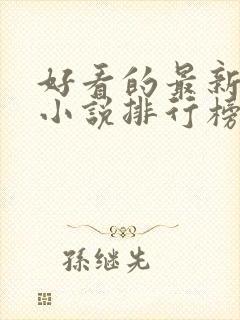 好看的最新
小说排行榜
孫继先